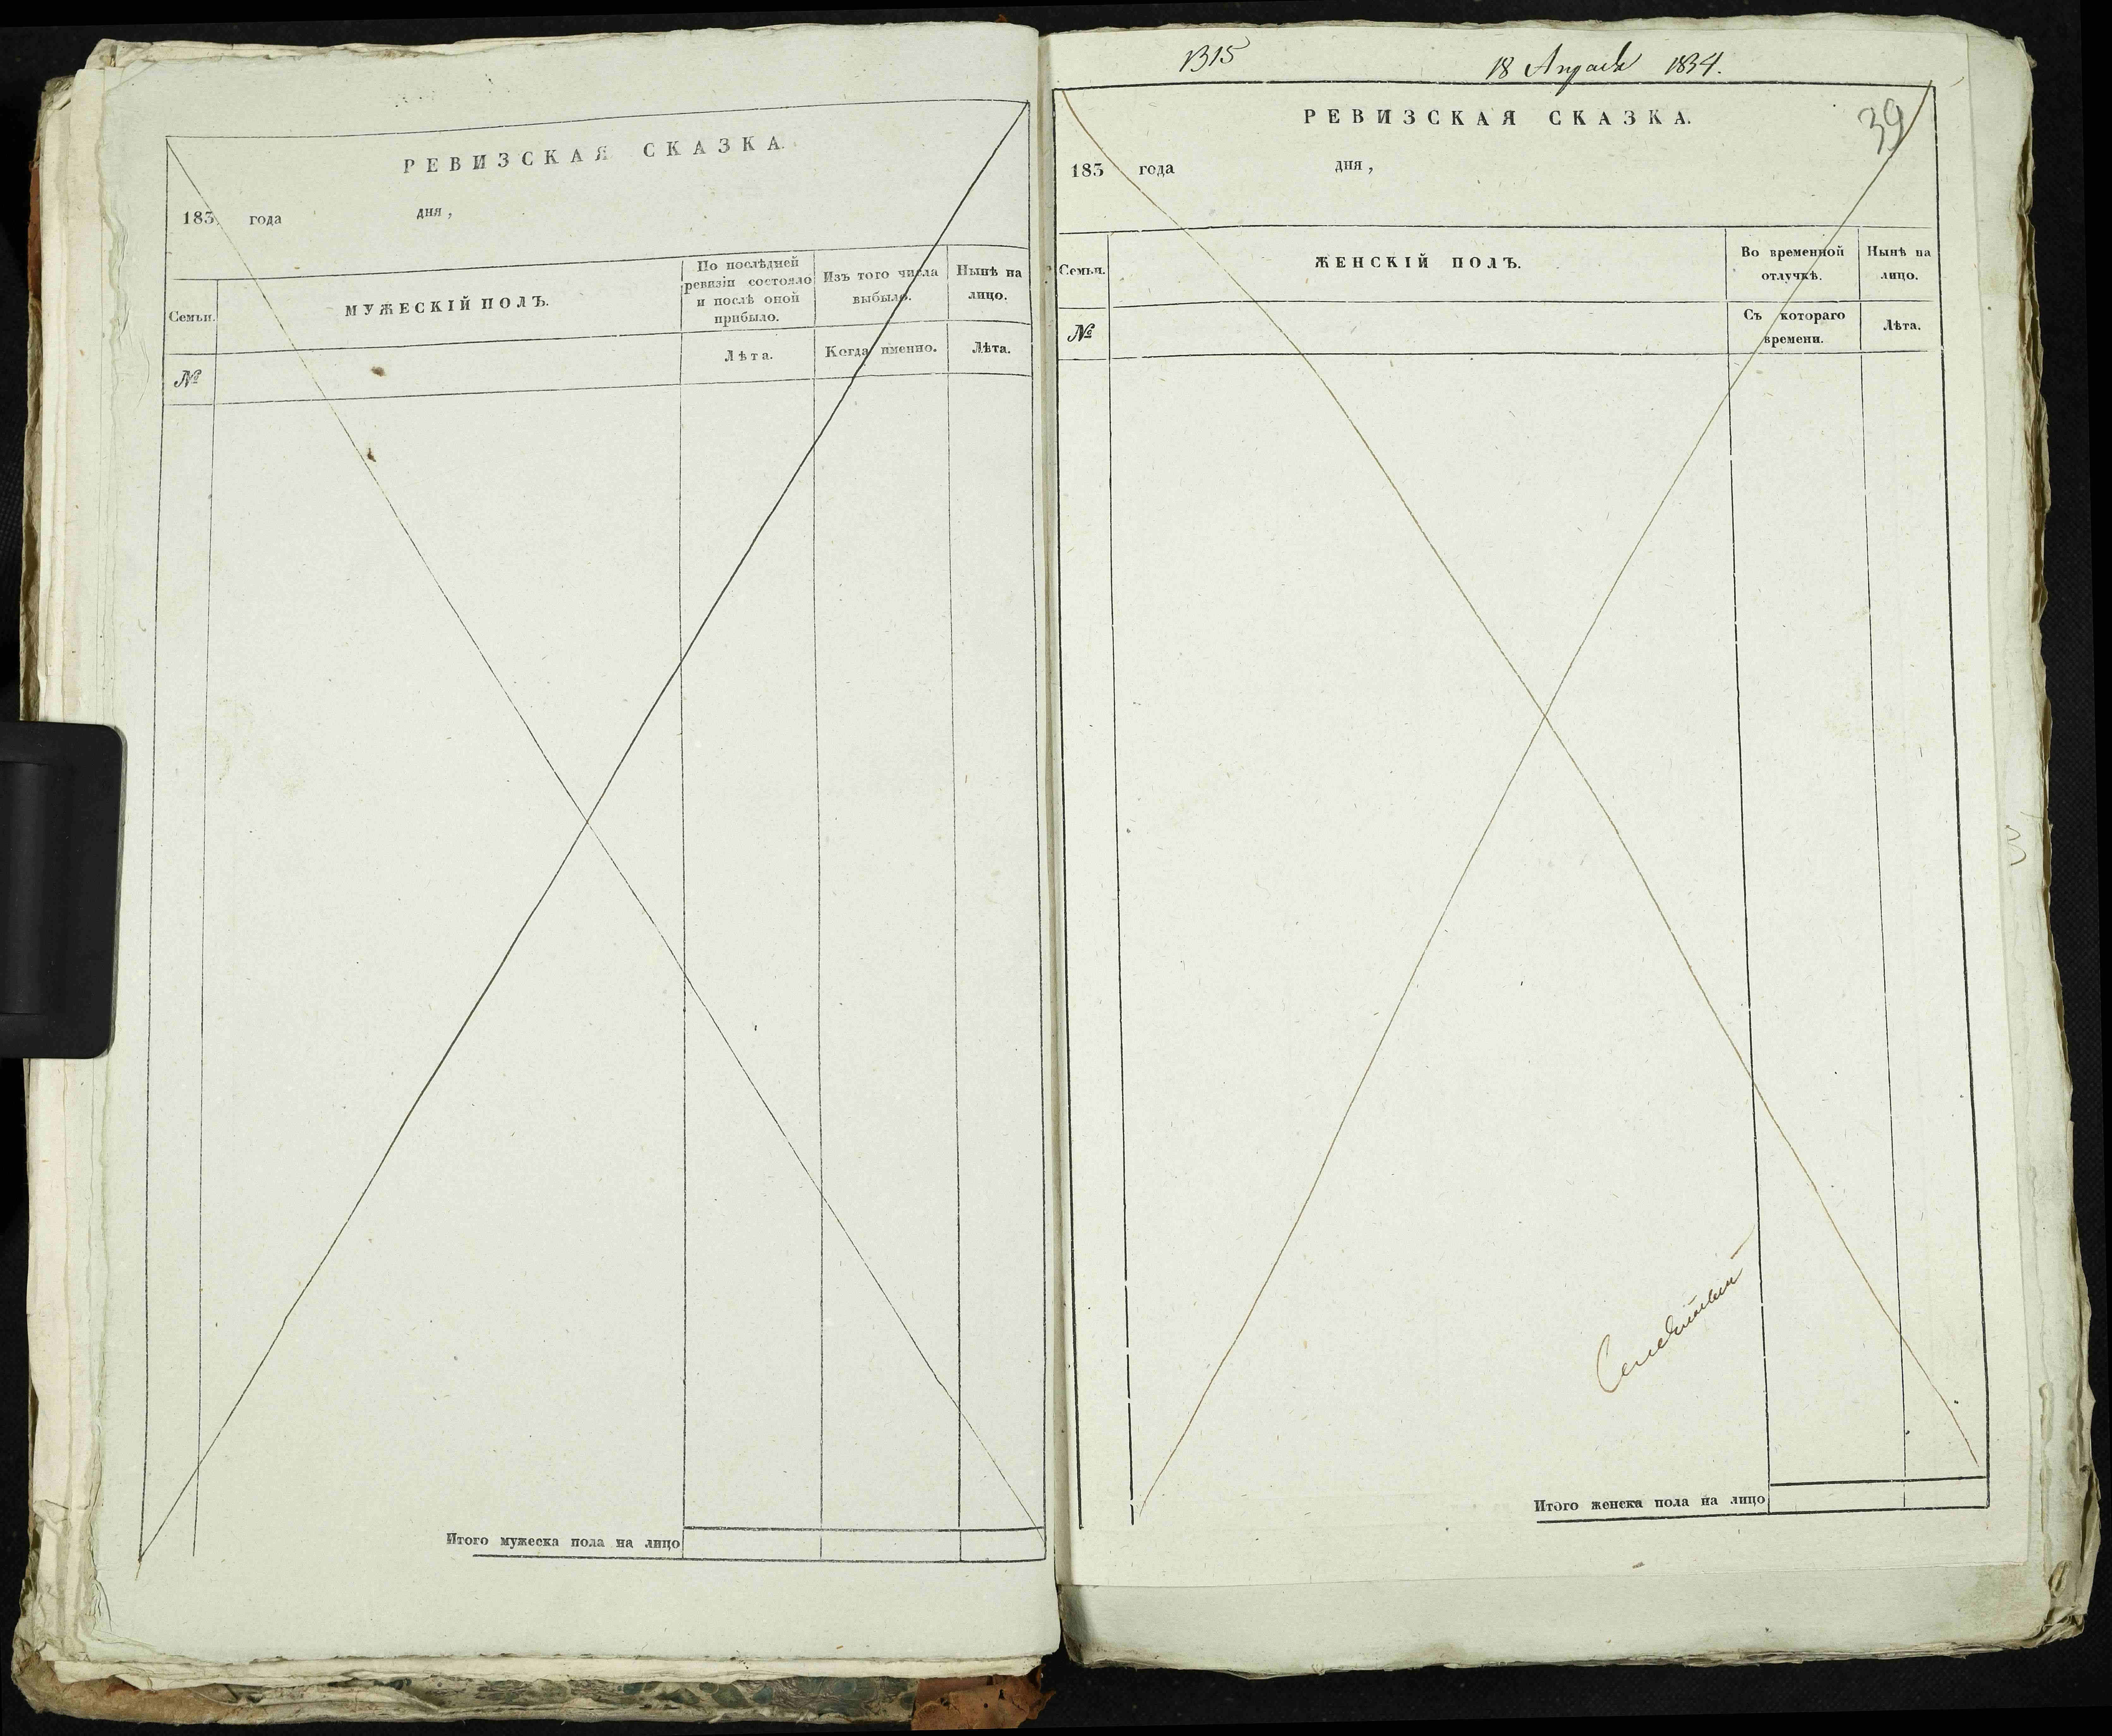 РЕВИЗСКАЯ СКАЗКА.
183 года дня,
Семьи.
МУЖЕСКІЙ ПОЛЪ.
По послѣдней ревизіи состояло и послѣ оной прибыло.
Изъ того числа выбыло.
Нынѣ на лицо.
№
Лѣта.
Когда именно.
Лѣта.
Итого мужеска пола на лицо
1315
18 Апрѣля 1834.
39
РЕВИЗСКАЯ СКАЗКА.
183 года дня,
Семьи.
ЖЕНСКІЙ ПОЛЪ.
Во временной отлучкѣ.
Нынѣ на лицо.
№
Съ котораго времени.
Лѣта.
Итого женска пола на лицо